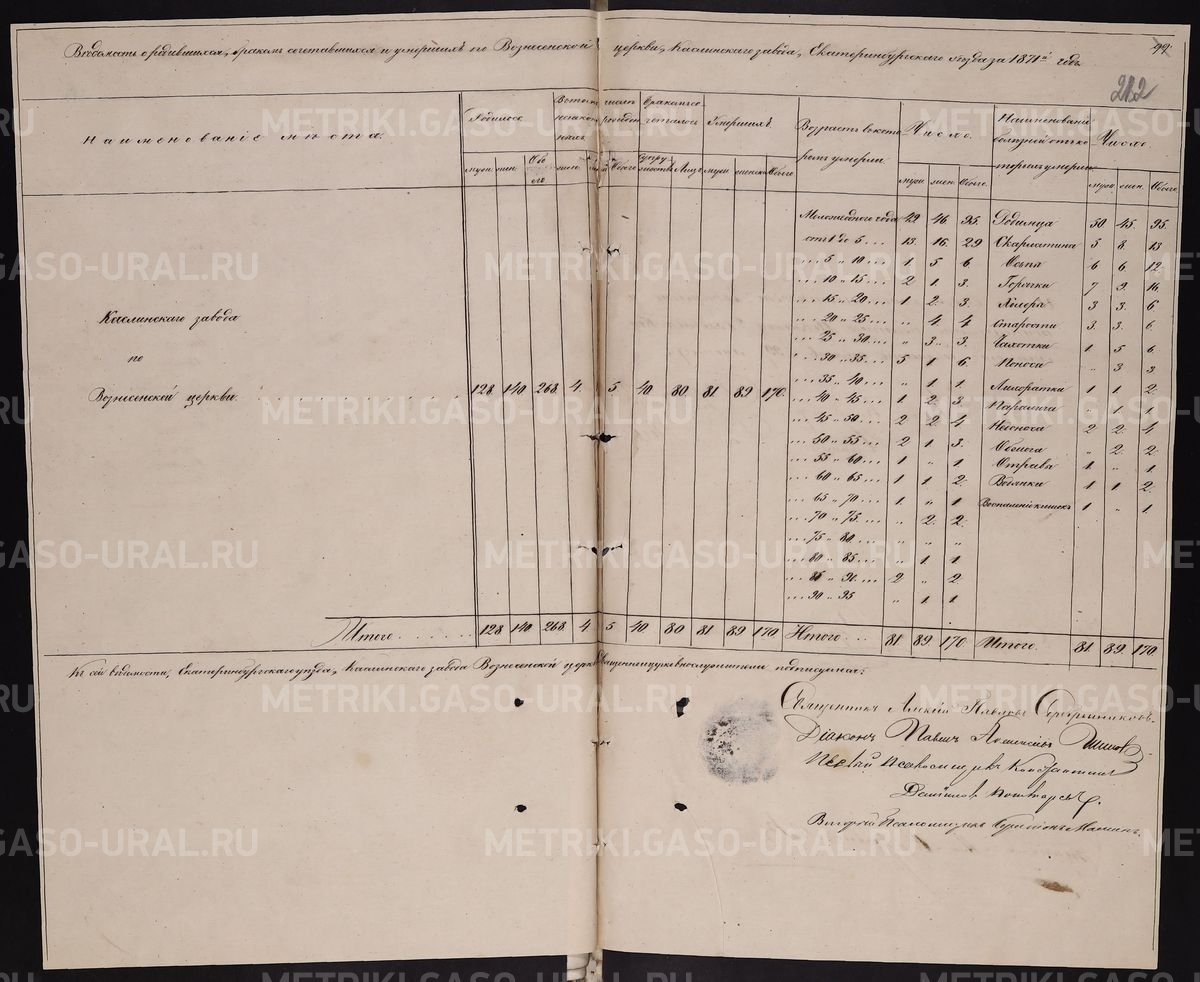 Ведомость о родившихся, бракомъ сочетавшихся и умершихъ по Вознесенской церкви, Каслинскаго завода, Екатеринбургскаго уѣзда за 1871й годъ.
99
212
Наименованіе мѣста.
Родилось
муж. жен. Обоего
Въ томъ числѣ незаконнорожден
жен. Обоего
Бракомъ сочеталось
супружествъ Лицъ
Умершихъ.
муж женска Обоего
Возрастъ въ которомъ умерли
Число.
муж. жен. Обоего.
Наименованіе болѣзней отъ которыхъ умерли.
Число.
муж. жен. Обоего
Каслинскаго завода
по
Вознесенской церкви. 128 140 268 4. 5 40 80 81 89 170.
Моложе одного года 49 46. 95. Родимца 50 45. 95.
отъ 1 до 5 ... 13. 16. 29 Скарлатина 5 8. 13
... 5 „ 10 ... 1 5 6. Оспа 6 6 12
... 10 „ 15 ... 2 1. 3. Горячки 7 9. 16.
... 15 „ 20 ... 1 2 3. Холера 3 3 6
... 20 „ 25 ... „ 4 4 Старости 3 3. 6
... 25 „ 30 ... „ 3. 3. Чахотки 1 5 6.
... 30 „ 35 ... 5 1 6. Поноса „ 3 3
... 35 „ 40 ... „ 1 1. Лихорадки 1 1 2.
... 40 „ 45 ... 1 2. 3. Паралича „ 1 1.
... 45 „ 50 ... 2 2 4 2 2. 4
... 50 „ 55 ... 2 1 3. „ 2. 2.
... 55 „ 60 ... 1 „ 1 Отрава 1 „ 1.
... 60 „ 65 ... 1 1 2. Водянки 1 1 2.
... 65 „ 70 ... 1 „ 1 Воспаленіе кишекъ 1 „ 1.
... 70 „ 75 ... „ 2. 2.
... 75 „ 80 ... „ „ „
... 80 „ 85 ... „ 1 1
... 85 „ 90 ... 2 „ 2.
... 90 „ 95 „ 1 1
Итого. 128 140 268 4 5 40. 80 81 89 170 Итого... 81 89. 170. Итого. 81. 89. 170
Къ сей вѣдомости, Екатеринбургскаго уѣзда, Каслинскаго завода Вознесенской церкви священноцерковнослужители подписуемся:
Священникъ Алексій Павловъ Серебренниковъ.
Діаконъ Павелъ Алексѣевъ
Первый Псаломщикъ Константинъ
Даніиловъ
Второй Псаломщикъ
METRIKI.GASO-URAL.RU